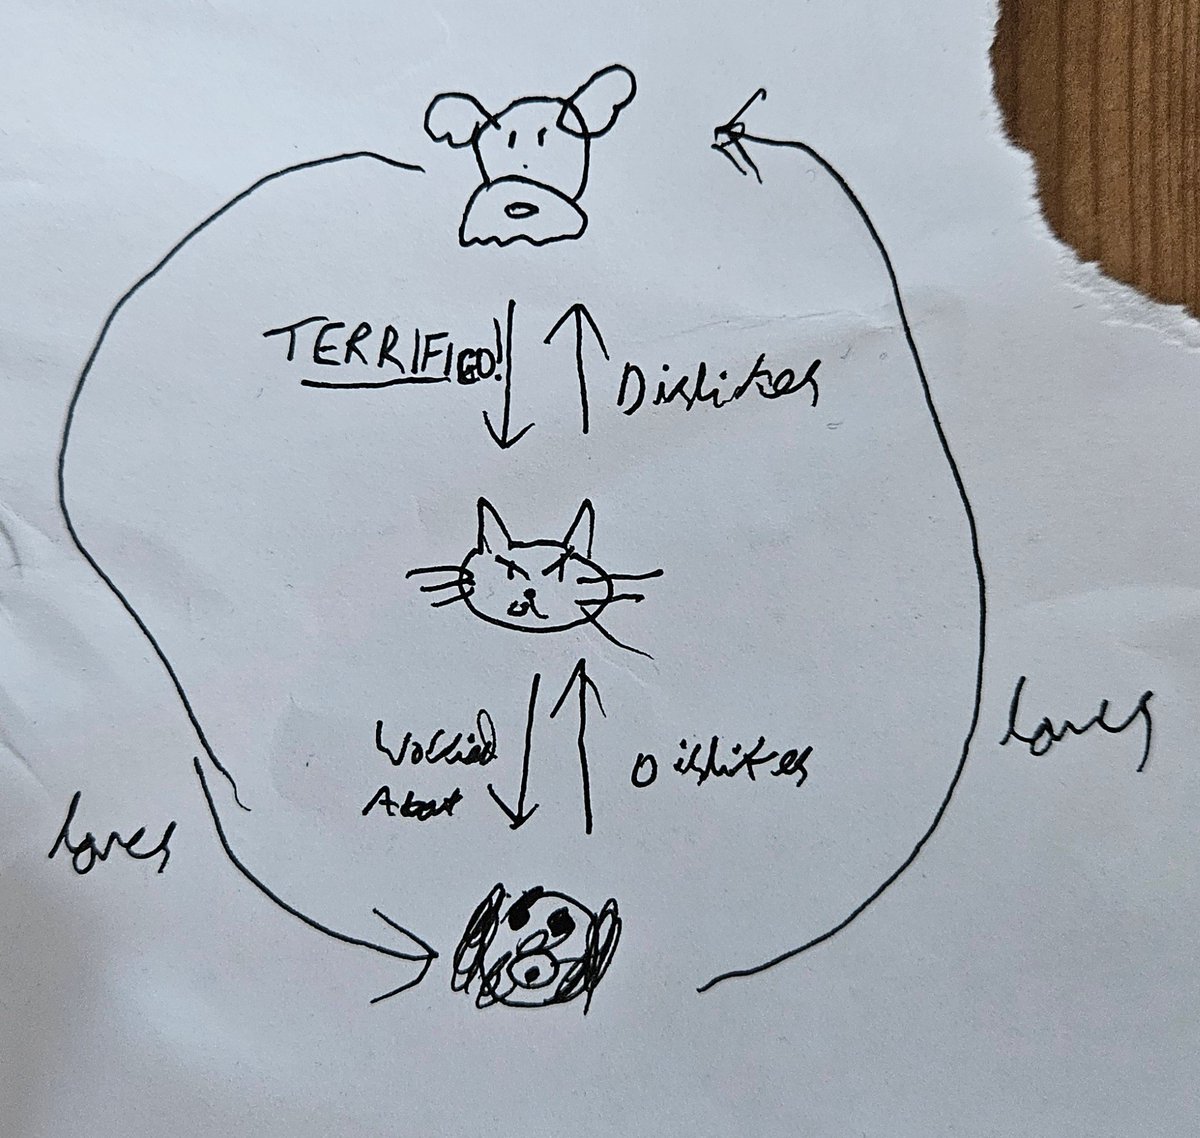 TERRIFIED!
Dislikes
Worried
About
Dislikes
loves
loves